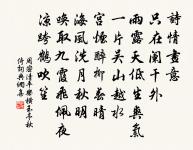 詩情畫意
只在闌干外
雨露天低生爽氣
一片吳山越水
宮煙醉柳春晴
海風洗月秋明
喚取九霞飛佩夜
涼跨鶴吹笙
周密清平樂橫玉亭秋
倚詞典網書